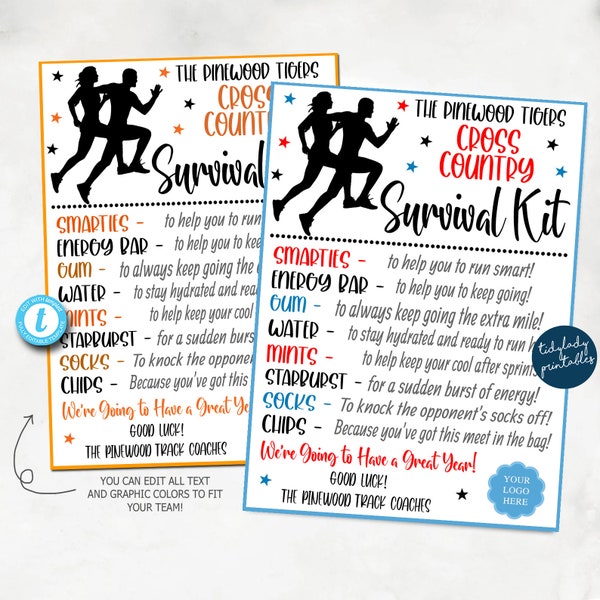 THE PINEWOOD TIGERS
CROSS
COUNTRY
Survival
SMARTIES - to help you to run
ENERGY BAR - to help you to
GUM - to always keep going the
WATER - to stay hydrated and
MINTS - to help keep your cool
STARBURST - for a sudden
SOCKS - To knock the
CHIPS - Because you've got this
We're Going to Have a Great Year
GOOD LUCK!
THE PINEWOOD TRACK COACHES
t
THE PINEWOOD TIGERS
CROSS
COUNTRY
Survival Kit
SMARTIES - to help you to run smart!
ENERGY BAR - to help you to keep going!
GUM - to always keep going the extra mile!
WATER - to stay hydrated and ready to run
MINTS - to help keep your cool after
STARBURST - for a sudden burst of energy!
SOCKS - To knock the opponent's socks off!
CHIPS - Because you've got this meet in the bag!
We're Going to Have a Great Year!
GOOD LUCK!
THE PINEWOOD TRACK COACHES
YOUR
LOGO
HERE
tidylady
printables
YOU CAN EDIT ALL TEXT
AND GRAPHIC COLORS TO FIT
YOUR TEAM!